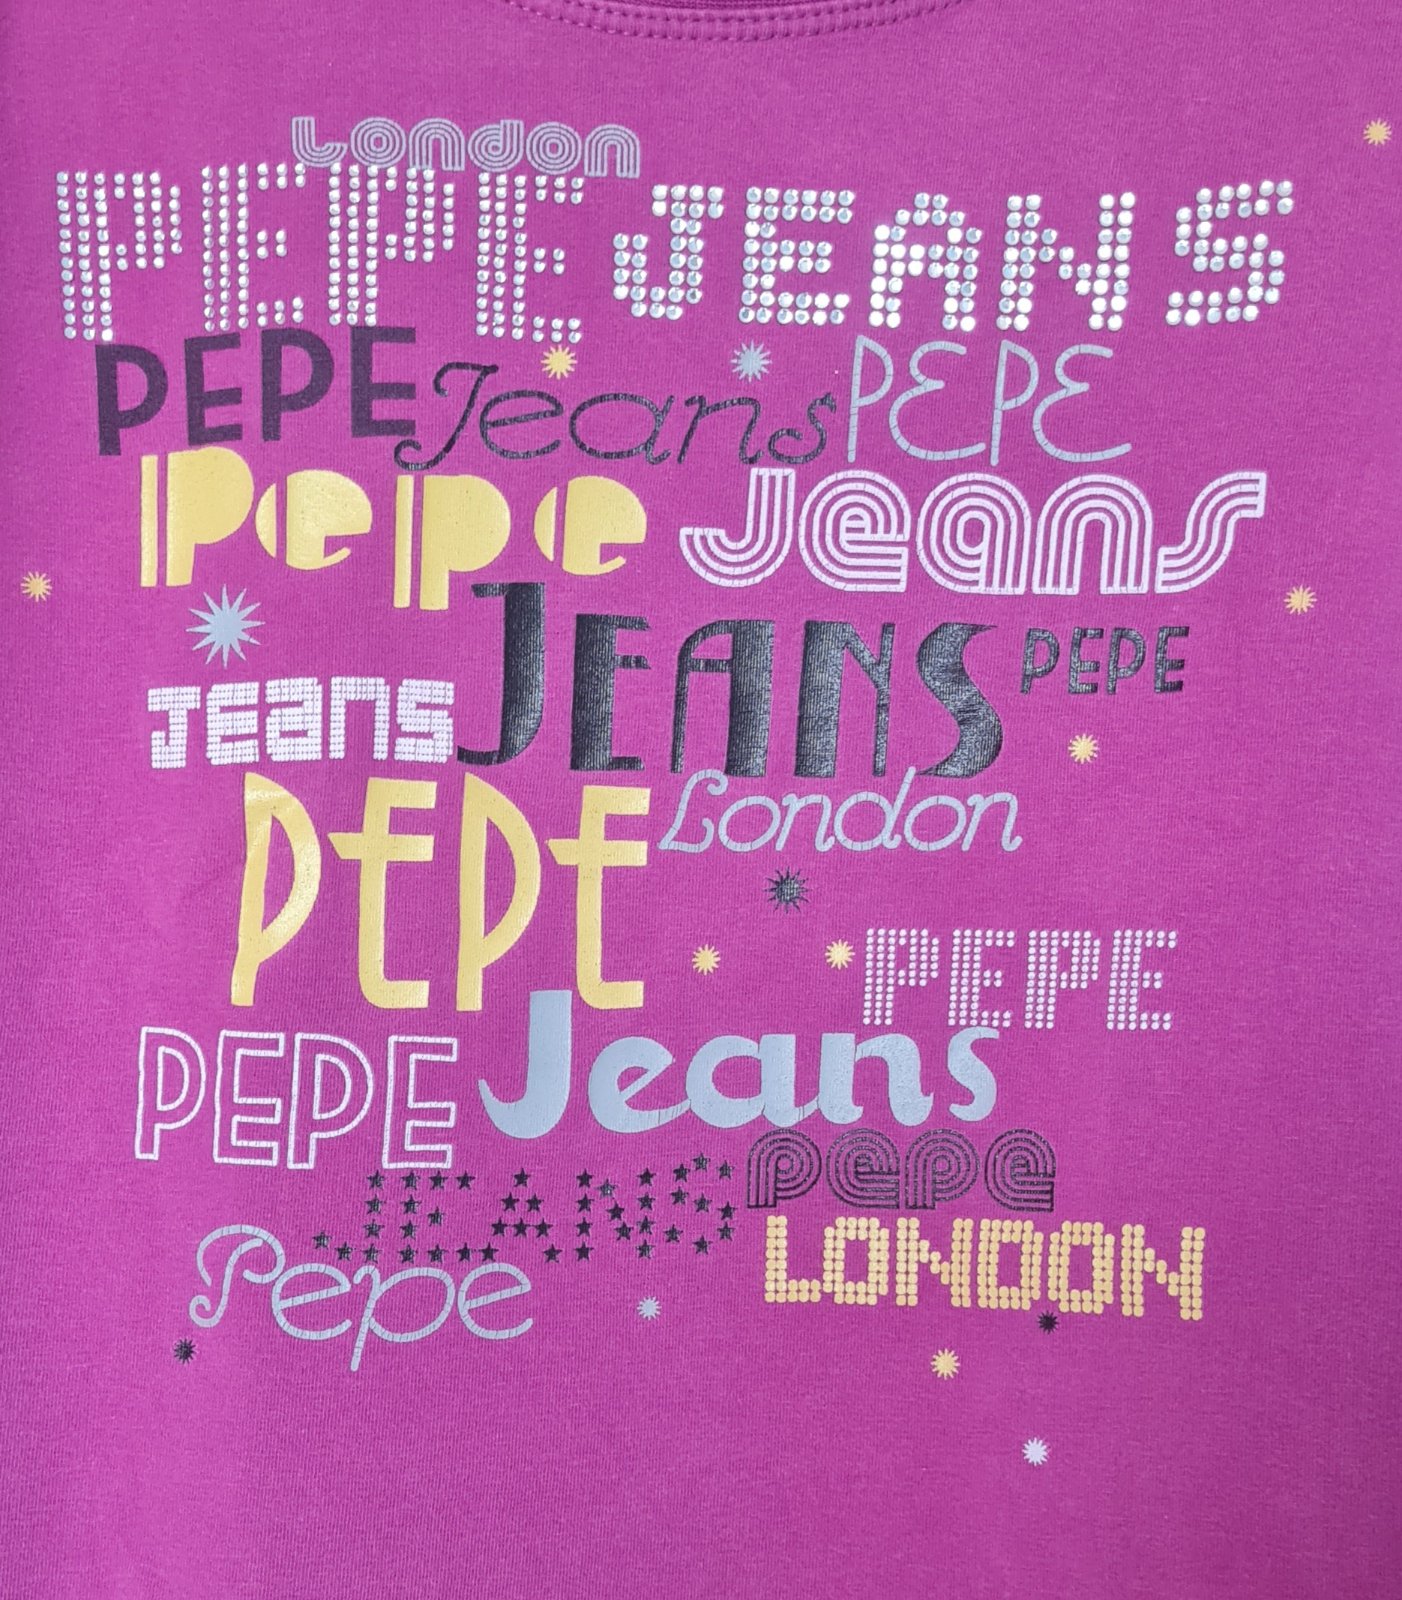 London
PEPE JEANS
PEPE Jeans PEPE
Pepe Jeans
JEANS PEPE
JEANS
PEPE London
PEPE
PEPE Jeans
pepe
JEANS
Pepe LONDON